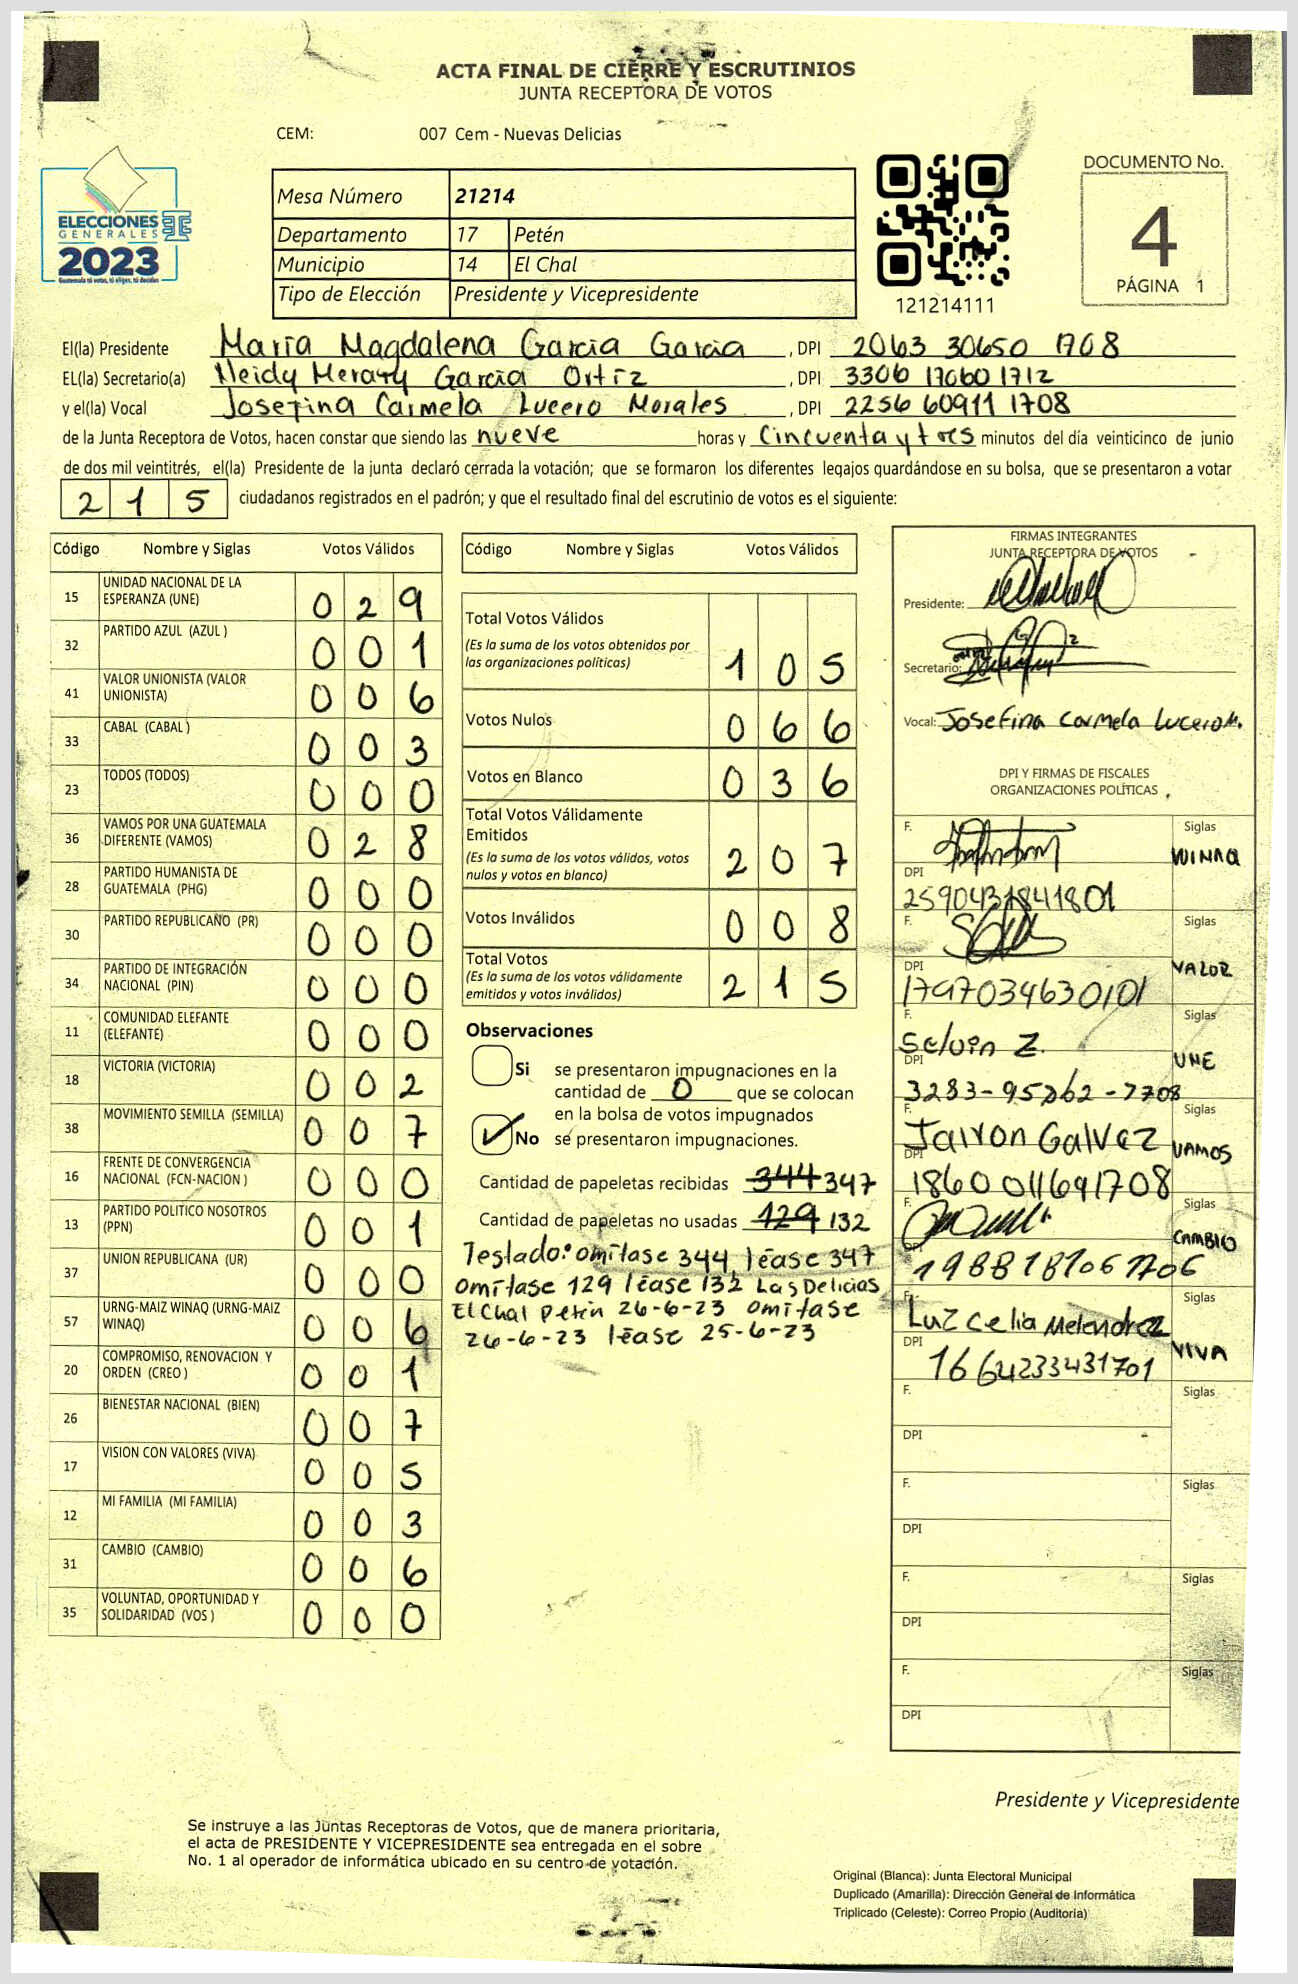 ACTA FINAL DE CIERRE Y ESCRUTINIOS
JUNTA RECEPTORA DE VOTOS
CEM: 007 Cem - Nuevas Delicias
ELECCIONES
GENERALES
2023
Guatemala tú votas, tú eliges, tú decides
Mesa Número 21214
Departamento 17 Petén
Municipio 14 El Chal
Tipo de Elección Presidente y Vicepresidente
121214111
DOCUMENTO No.
4
PÁGINA 1
El(la) Presidente Maria Magdalena Garcia Garcia , DPI 2063 30650 1708
EL(la) Secretario(a) Heidy Merary Garcia Ortiz , DPI 3306 17060 1712
y el(la) Vocal Josefina Carmela Lucero Morales , DPI 2256 60911 1708
de la Junta Receptora de Votos, hacen constar que siendo las nueve horas y Cincuenta y tres minutos del día veinticinco de junio
de dos mil veintitrés, el(la) Presidente de la junta declaró cerrada la votación; que se formaron los diferentes legajos guardándose en su bolsa, que se presentaron a votar
2 1 5 ciudadanos registrados en el padrón; y que el resultado final del escrutinio de votos es el siguiente:
Código Nombre y Siglas Votos Válidos
15 UNIDAD NACIONAL DE LA ESPERANZA (UNE) 0 2 9
32 PARTIDO AZUL (AZUL ) 0 0 1
41 VALOR UNIONISTA (VALOR UNIONISTA) 0 0 6
33 CABAL (CABAL ) 0 0 3
23 TODOS (TODOS) 0 0 0
36 VAMOS POR UNA GUATEMALA DIFERENTE (VAMOS) 0 2 8
28 PARTIDO HUMANISTA DE GUATEMALA (PHG) 0 0 0
30 PARTIDO REPUBLICANO (PR) 0 0 0
34 PARTIDO DE INTEGRACIÓN NACIONAL (PIN) 0 0 0
11 COMUNIDAD ELEFANTE (ELEFANTE) 0 0 0
18 VICTORIA (VICTORIA) 0 0 2
38 MOVIMIENTO SEMILLA (SEMILLA) 0 0 7
16 FRENTE DE CONVERGENCIA NACIONAL (FCN-NACION ) 0 0 0
13 PARTIDO POLITICO NOSOTROS (PPN) 0 0 1
37 UNION REPUBLICANA (UR) 0 0 0
57 URNG-MAIZ WINAQ (URNG-MAIZ WINAQ) 0 0 6
20 COMPROMISO, RENOVACION Y ORDEN (CREO ) 0 0 1
26 BIENESTAR NACIONAL (BIEN) 0 0 7
17 VISION CON VALORES (VIVA) 0 0 5
12 MI FAMILIA (MI FAMILIA) 0 0 3
31 CAMBIO (CAMBIO) 0 0 6
35 VOLUNTAD, OPORTUNIDAD Y SOLIDARIDAD (VOS ) 0 0 0
Código Nombre y Siglas Votos Válidos
Total Votos Válidos
(Es la suma de los votos obtenidos por
las organizaciones políticas) 1 0 5
Votos Nulos 0 6 6
Votos en Blanco 0 3 6
Total Votos Válidamente
Emitidos
(Es la suma de los votos válidos, votos
nulos y votos en blanco) 2 0 7
Votos Inválidos 0 0 8
Total Votos
(Es la suma de los votos válidamente
emitidos y votos inválidos) 2 1 5
Observaciones
Si se presentaron impugnaciones en la
cantidad de 0 que se colocan
en la bolsa de votos impugnados
No se presentaron impugnaciones.
Cantidad de papeletas recibidas 344 347
Cantidad de papeletas no usadas 129 132
Testado: omitase 344, léase 347
omitase 129 léase 132 Las Delicias
El Chal Petén 26-6-23 omitase
26-6-23 léase 25-6-23
FIRMAS INTEGRANTES
JUNTA RECEPTORA DE VOTOS
Presidente:
Secretario:
Vocal: Josefina Carmela Lucero M.
DPI Y FIRMAS DE FISCALES
ORGANIZACIONES POLÍTICAS
F. Siglas
WINAQ
DPI
F. Siglas
VALOR
DPI
1797034630101
F. Siglas
Selvin Z.
UNE
DPI
F. Siglas
Jairon Galvez
VAMOS
DPI
1860011691708
F. Siglas
CAMBIO
DPI
F. Siglas
Luz Celia Melendrez
VIVA
DPI
1664233431701
F. Siglas
DPI
F. Siglas
DPI
F. Siglas
DPI
F. Siglas
DPI
Presidente y Vicepresidente
Se instruye a las Juntas Receptoras de Votos, que de manera prioritaria,
el acta de PRESIDENTE Y VICEPRESIDENTE sea entregada en el sobre
No. 1 al operador de informática ubicado en su centro de votación.
Original (Blanca): Junta Electoral Municipal
Duplicado (Amarilla): Dirección General de Informática
Triplicado (Celeste): Correo Propio (Auditoria)